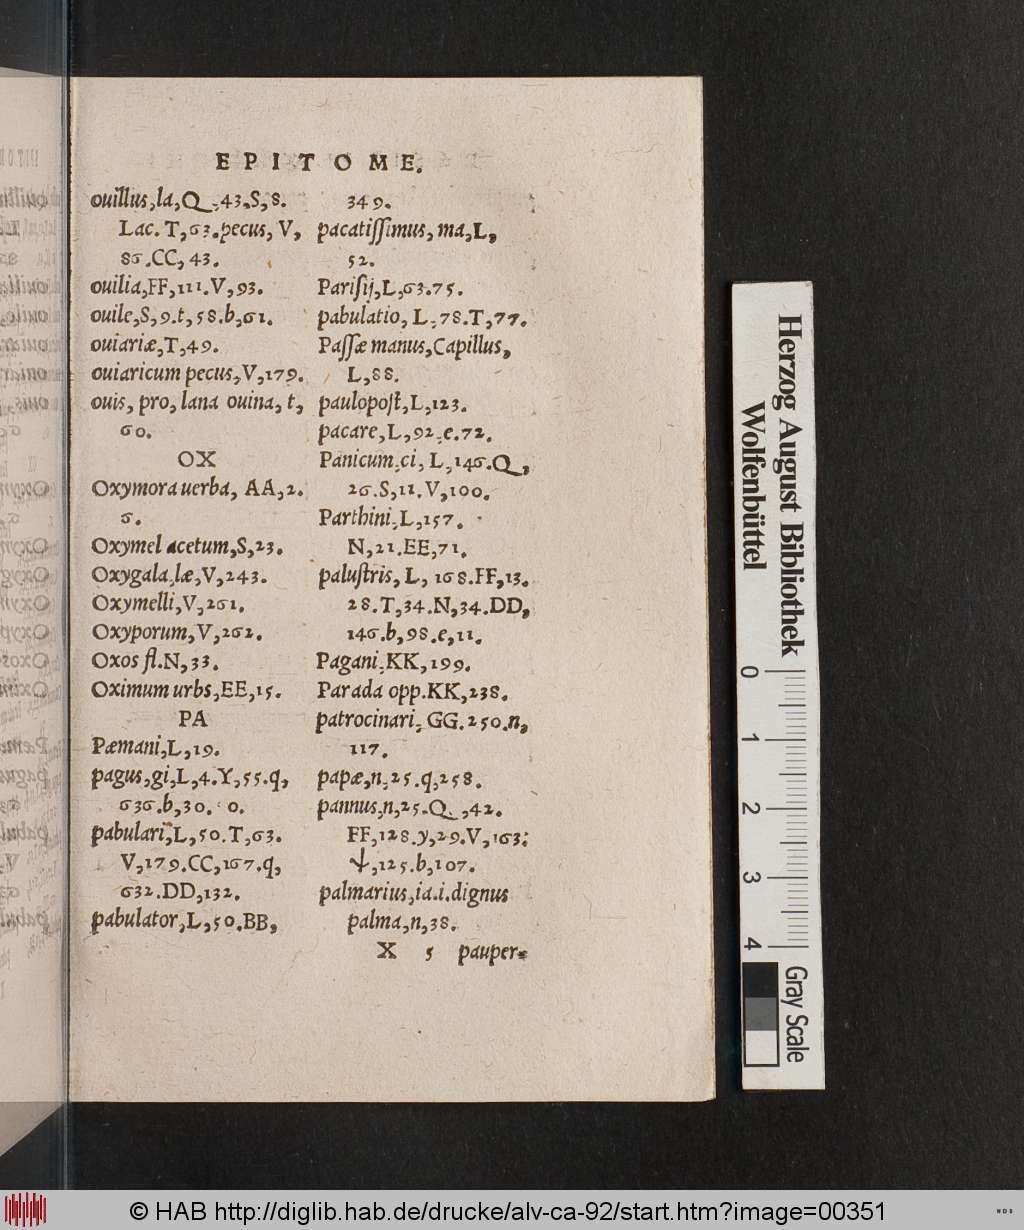 EPITOME.
ouillus,la,Q,43.S,8.
Lac. T,63.pecus, V,
86.CC,43.
ouilia,FF,111.V,93.
ouile,S,9.t,58.b,61.
ouiariæ,T,49.
ouiaricum pecus,V,179.
ouis, pro, lana ouina, t,
60.
OX
Oxymora uerba, AA,2.
6.
Oxymel acetum,S,23.
Oxygala,læ,V,243.
Oxymelli,V,261.
Oxyporum,V,262.
Oxos fl.N,33.
Oximum urbs,EE,15.
PA
Pæmani,L,19.
pagus,gi,L,4.Y,55.q,
636.b,30. o.
pabulari,L,50.T,63.
V,179.CC,167.q,
632.DD,132.
pabulator,L,50.BB,
349.
pacatissimus, ma,L,
52.
Parisij,L,63.75.
pabulatio, L,78.T,77.
Passæ manus,Capillus,
L,88.
paulopost,L,123.
pacare,L,92.e.72.
Panicum,ci, L,146.Q,
26.S,11.V,100.
Parthini,L,157.
N,21.EE,71.
palustris, L, 168.FF,13.
28.T,34.N,34.DD,
146.b,98.e,11.
Pagani,KK,199.
Parada opp.KK,238.
patrocinari, GG.250.n,
117.
papæ,n,25.q,258.
pannus,n,25.Q,42.
FF,128.y,29.V,163.
ψ,125.b,107.
palmarius,ia.i.dignus
palma,n,38.
X 5 pauper-
Herzog August Bibliothek
Wolfenbüttel
0 1 2 3 4
Gray Scale
© HAB http://diglib.hab.de/drucke/alv-ca-92/start.htm?image=00351